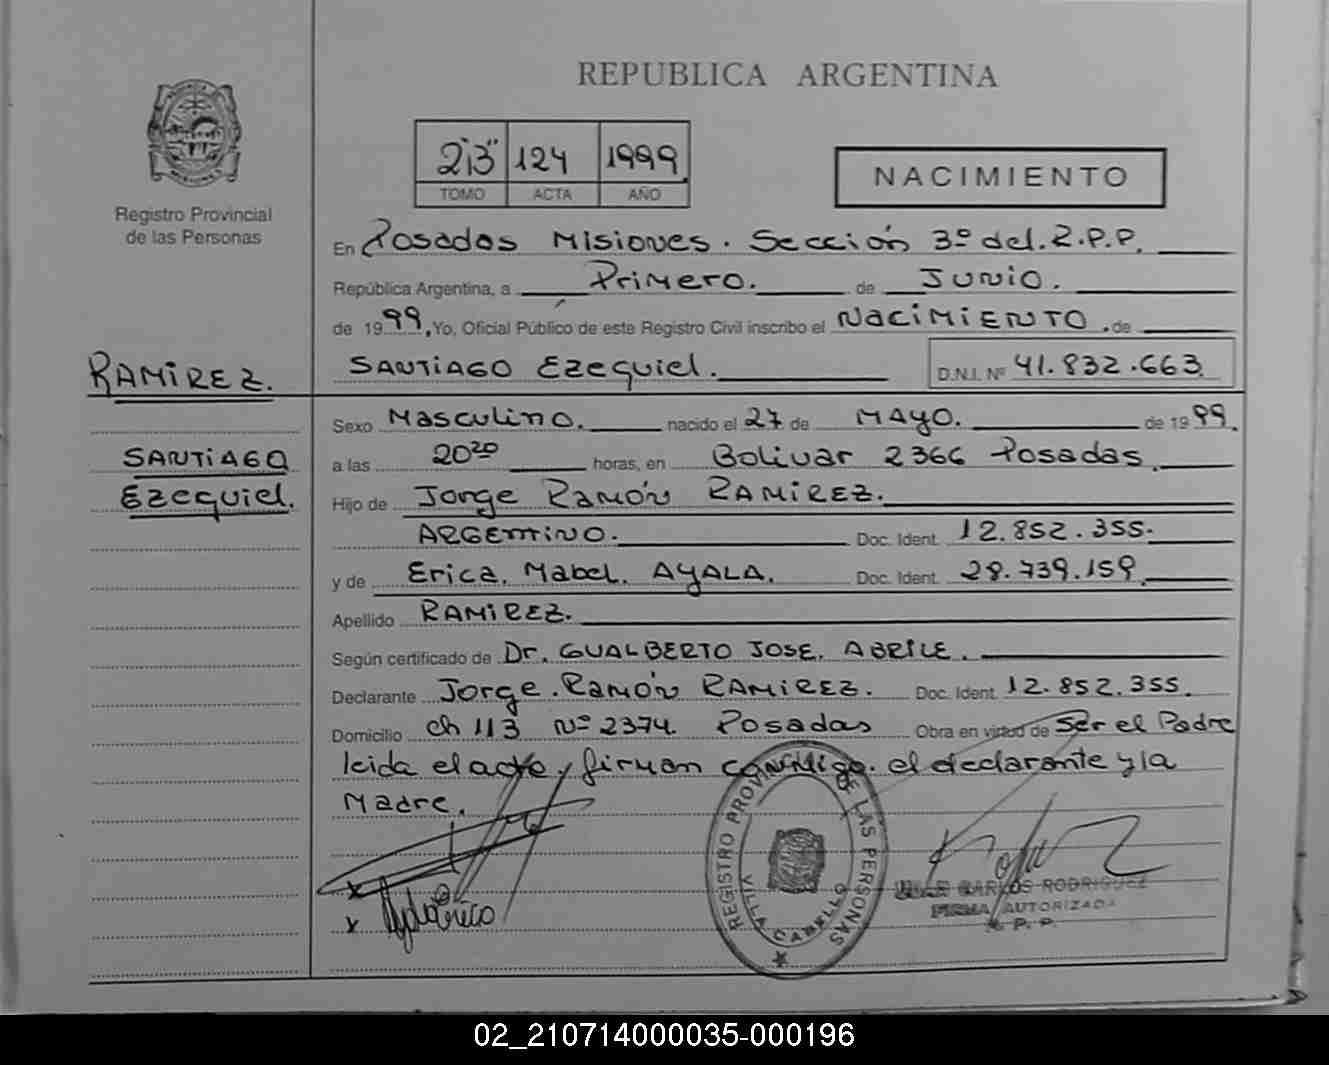 REPUBLICA ARGENTINA
Registro Provincial
de las Personas
2i3" 124 1999
TOMO ACTA AÑO
NACIMIENTO
En Posadas Misiones. Sección 3º del. R.P.P.
República Argentina, a Primero. de Junio.
de 1999, Yo, Oficial Público de este Registro Civil inscribo el NaciMiENTO. de
SANTIAGO Ezequiel. D.N.I. Nº 41.832.663
RAMIREZ.
SANTIAGO
Ezequiel.
Sexo Masculino. nacido el 27 de MAyo. de 1999.
a las 20 20 horas, en Bolivar 2366 Posadas.
Hijo de Jorge Ramón RAMIREZ.
ARGENTINO. Doc. Ident. 12.852.355.
y de Erica. Mabel. AYALA. Doc. Ident. 28.739.159
Apellido RAMIREZ.
Según certificado de Dr. GUALBERTO JOSE. ABRILE.
Declarante Jorge. Ramón RAMIREZ. Doc. Ident. 12.852.355.
Domicilio ch 113 Nº 2374. Posadas Obra en virtud de Ser el Padre
leida el acta, firman conmigo. el declarante y la
Madre.
REGISTRO PROVINCIAL DE LAS PERSONAS
VILLA CABELLO
CARLOS RODRIGUEZ
FIRMA AUTORIZADA
R. P. P.
02_210714000035-000196